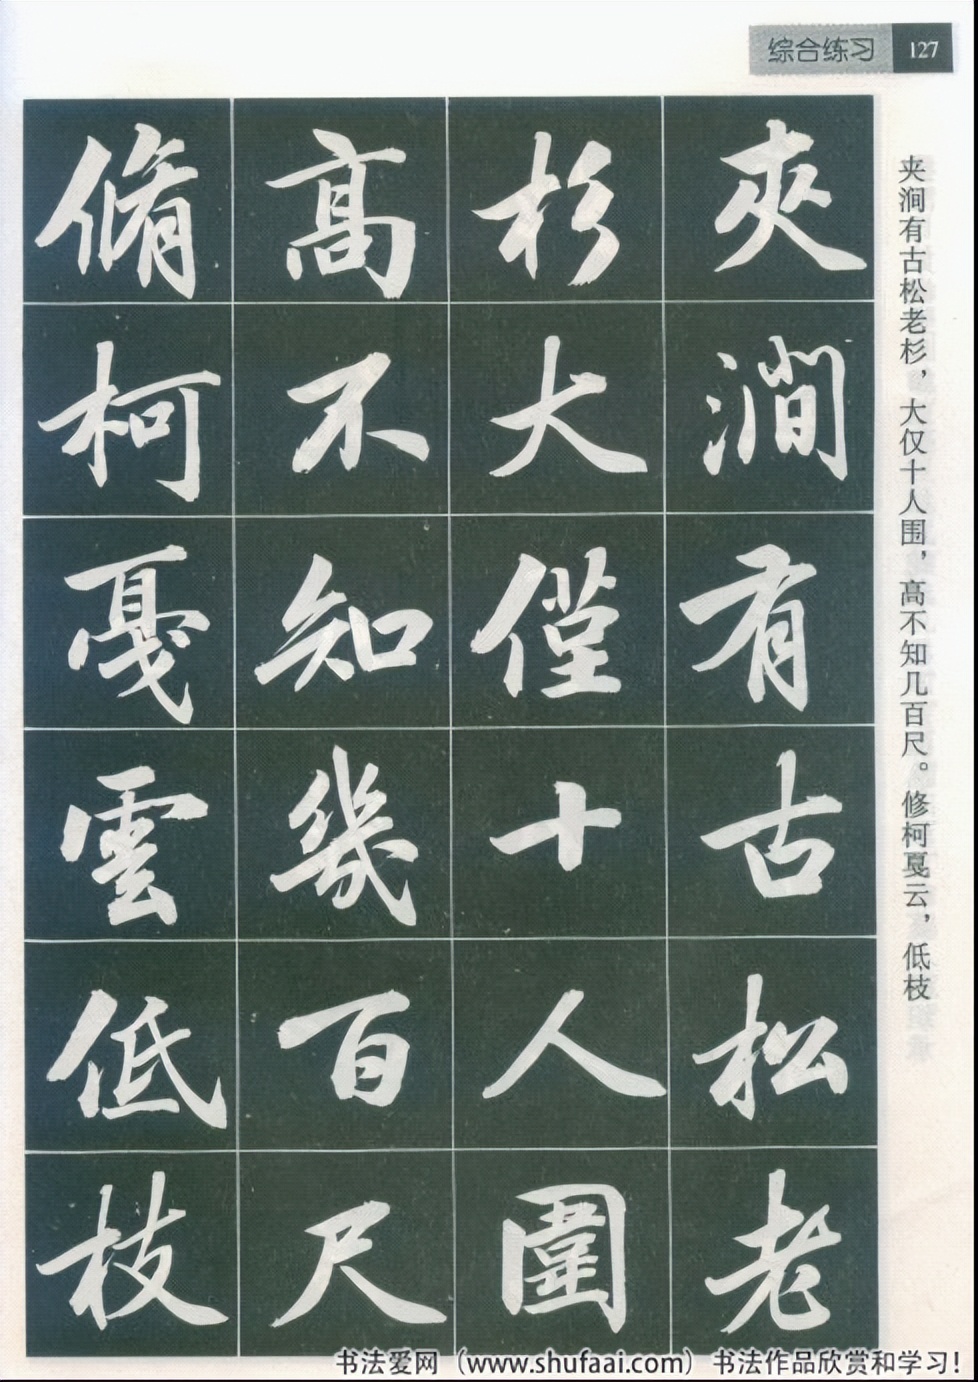 综合练习 127
夹涧有古松老杉，大仅十人围，高不知几百尺。修柯戛云，低枝
夾澗有古松老
杉大僅十人圍
高不知幾百尺
脩柯戛雲低枝
书法爱网（www.shufaai.com）书法作品欣赏和学习！